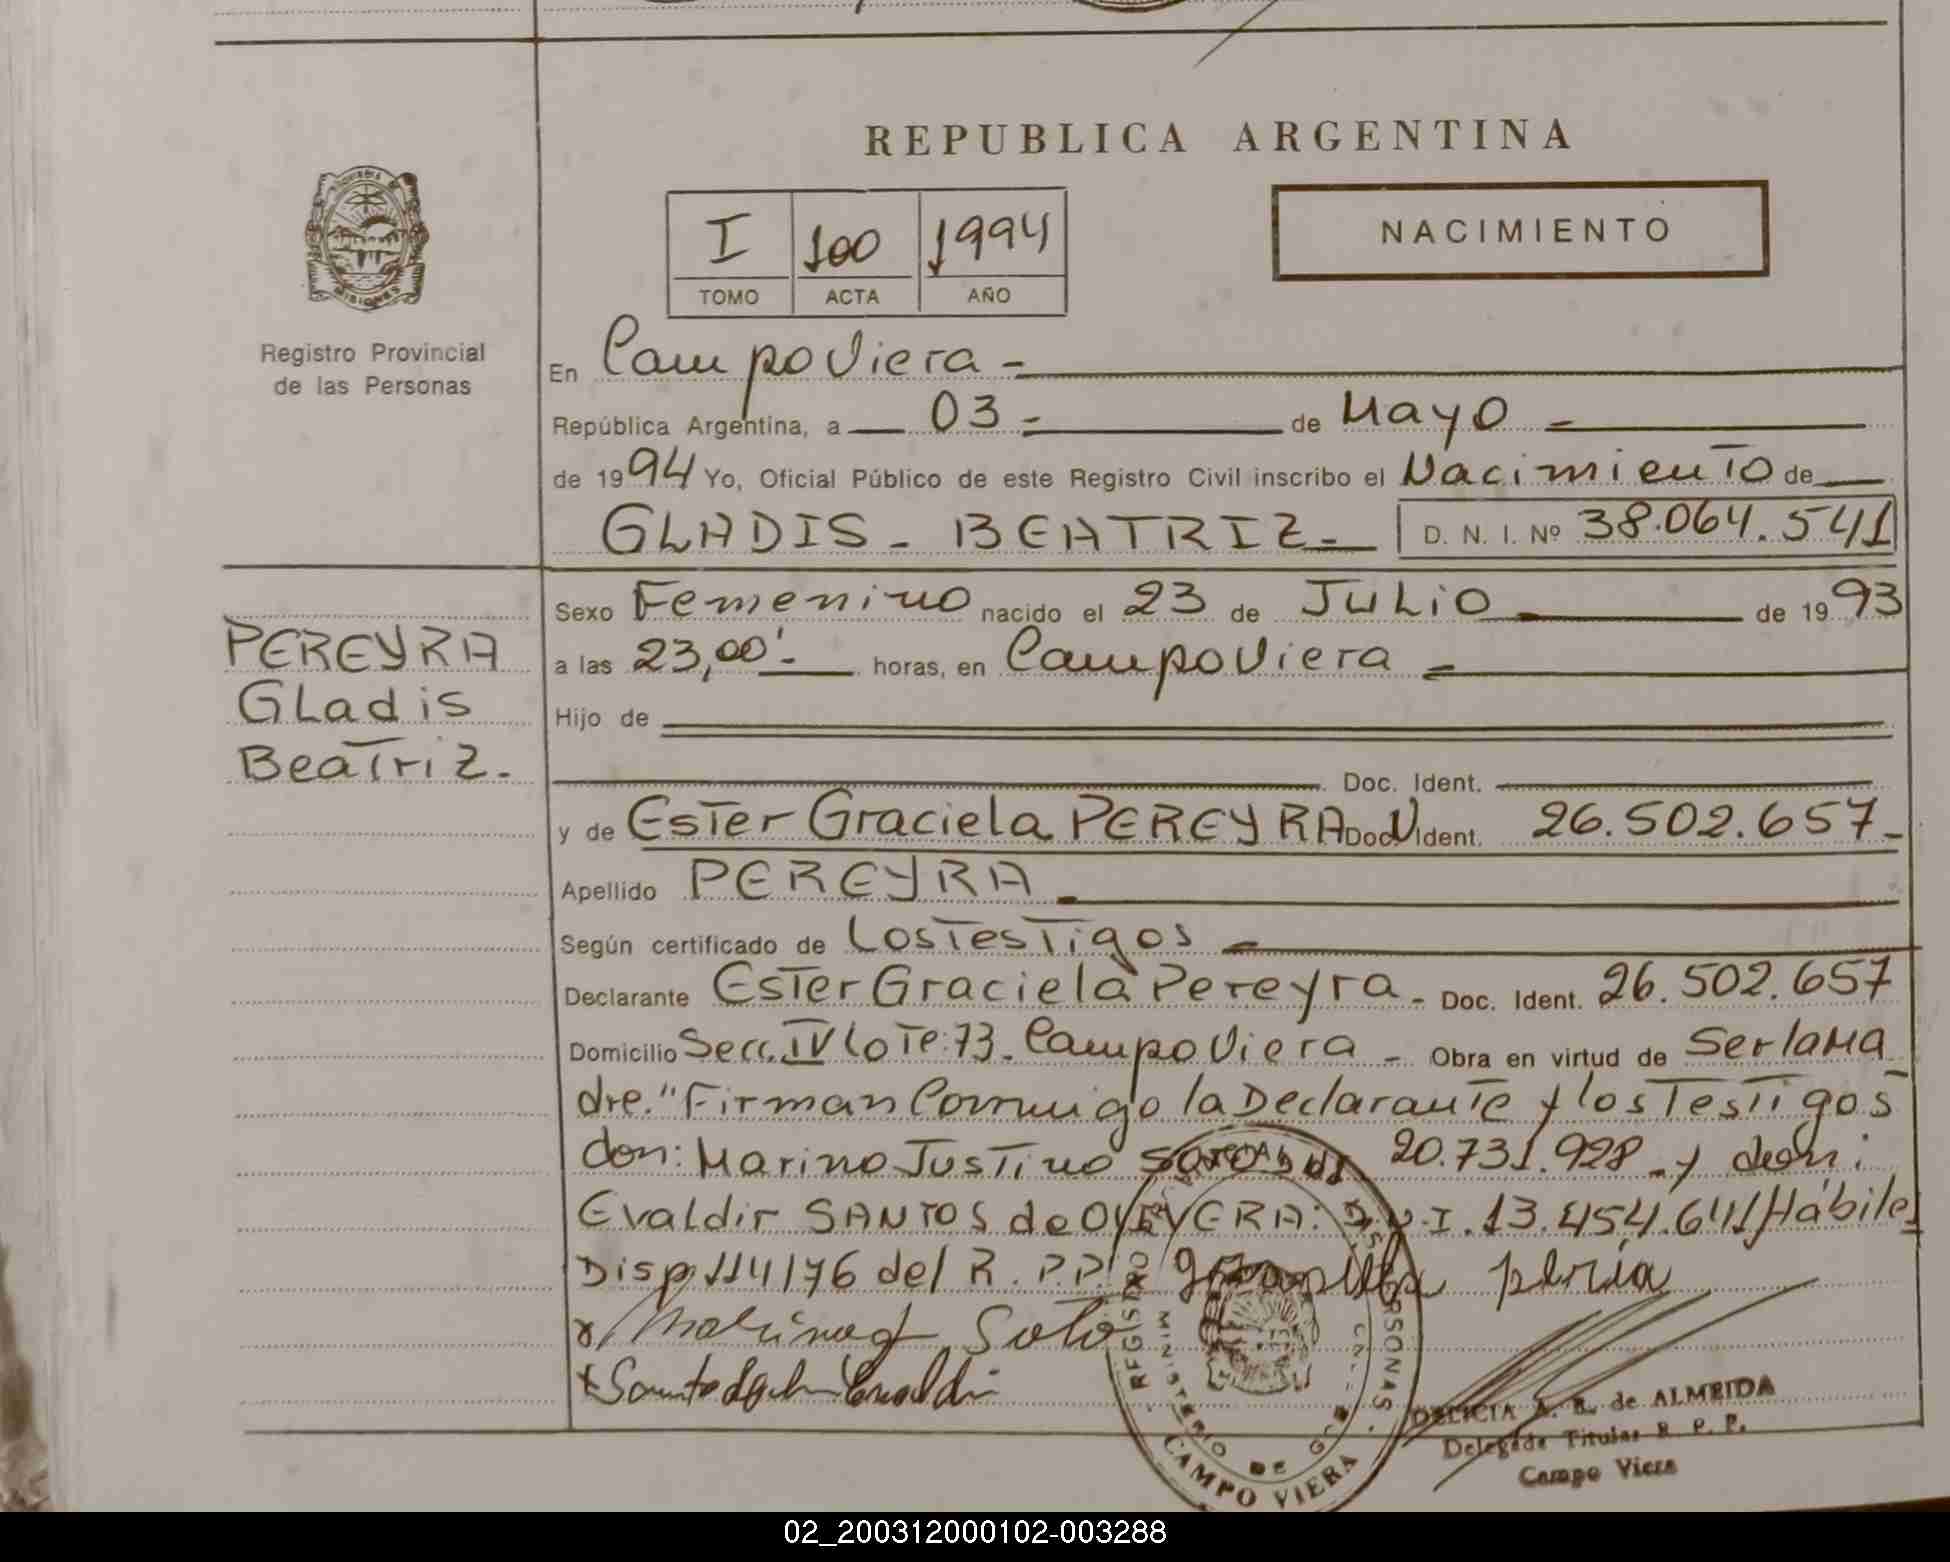 REPUBLICA ARGENTINA
I 100 1994
TOMO ACTA AÑO
NACIMIENTO
MISIONES
Registro Provincial
de las Personas
En Campo Viera -
República Argentina, a 03 - de Mayo -
de 1994 Yo, Oficial Público de este Registro Civil inscribo el Nacimiento de
GLADIS - BEATRIZ - D. N. I. Nº 38.064.541
PEREYRA
Gladis
Beatriz.
Sexo Femenino nacido el 23 de Julio de 1993
a las 23,00'- horas, en Campo Viera -
Hijo de
Doc. Ident.
y de Ester Graciela PEREYRA Doc. Ident. 26.502.657-
Apellido PEREYRA
Según certificado de Los Testigos -
Declarante Ester Graciela Pereyra - Doc. Ident. 26.502.657
Domicilio Secc. IV Lote: 73 - Campo Viera - Obra en virtud de Ser la Ma
dre." Firman Conmigo la Declarante y los Testigos
don: Marino Justino SOTO 20.731.928 - y don:
Evaldir SANTOS de OLIVERA: D.N.I. 13.454.641/Hábiles
Disp. 114/76 del R.P.P.
x Soto
x
REGISTRO PROVINCIAL DE LAS PERSONAS
MINISTERIO DE GOB
CAMPO VIERA
DELICIA A. B. de ALMEIDA
Delegada Titular R. P. P.
Campo Viera
02_200312000102-003288